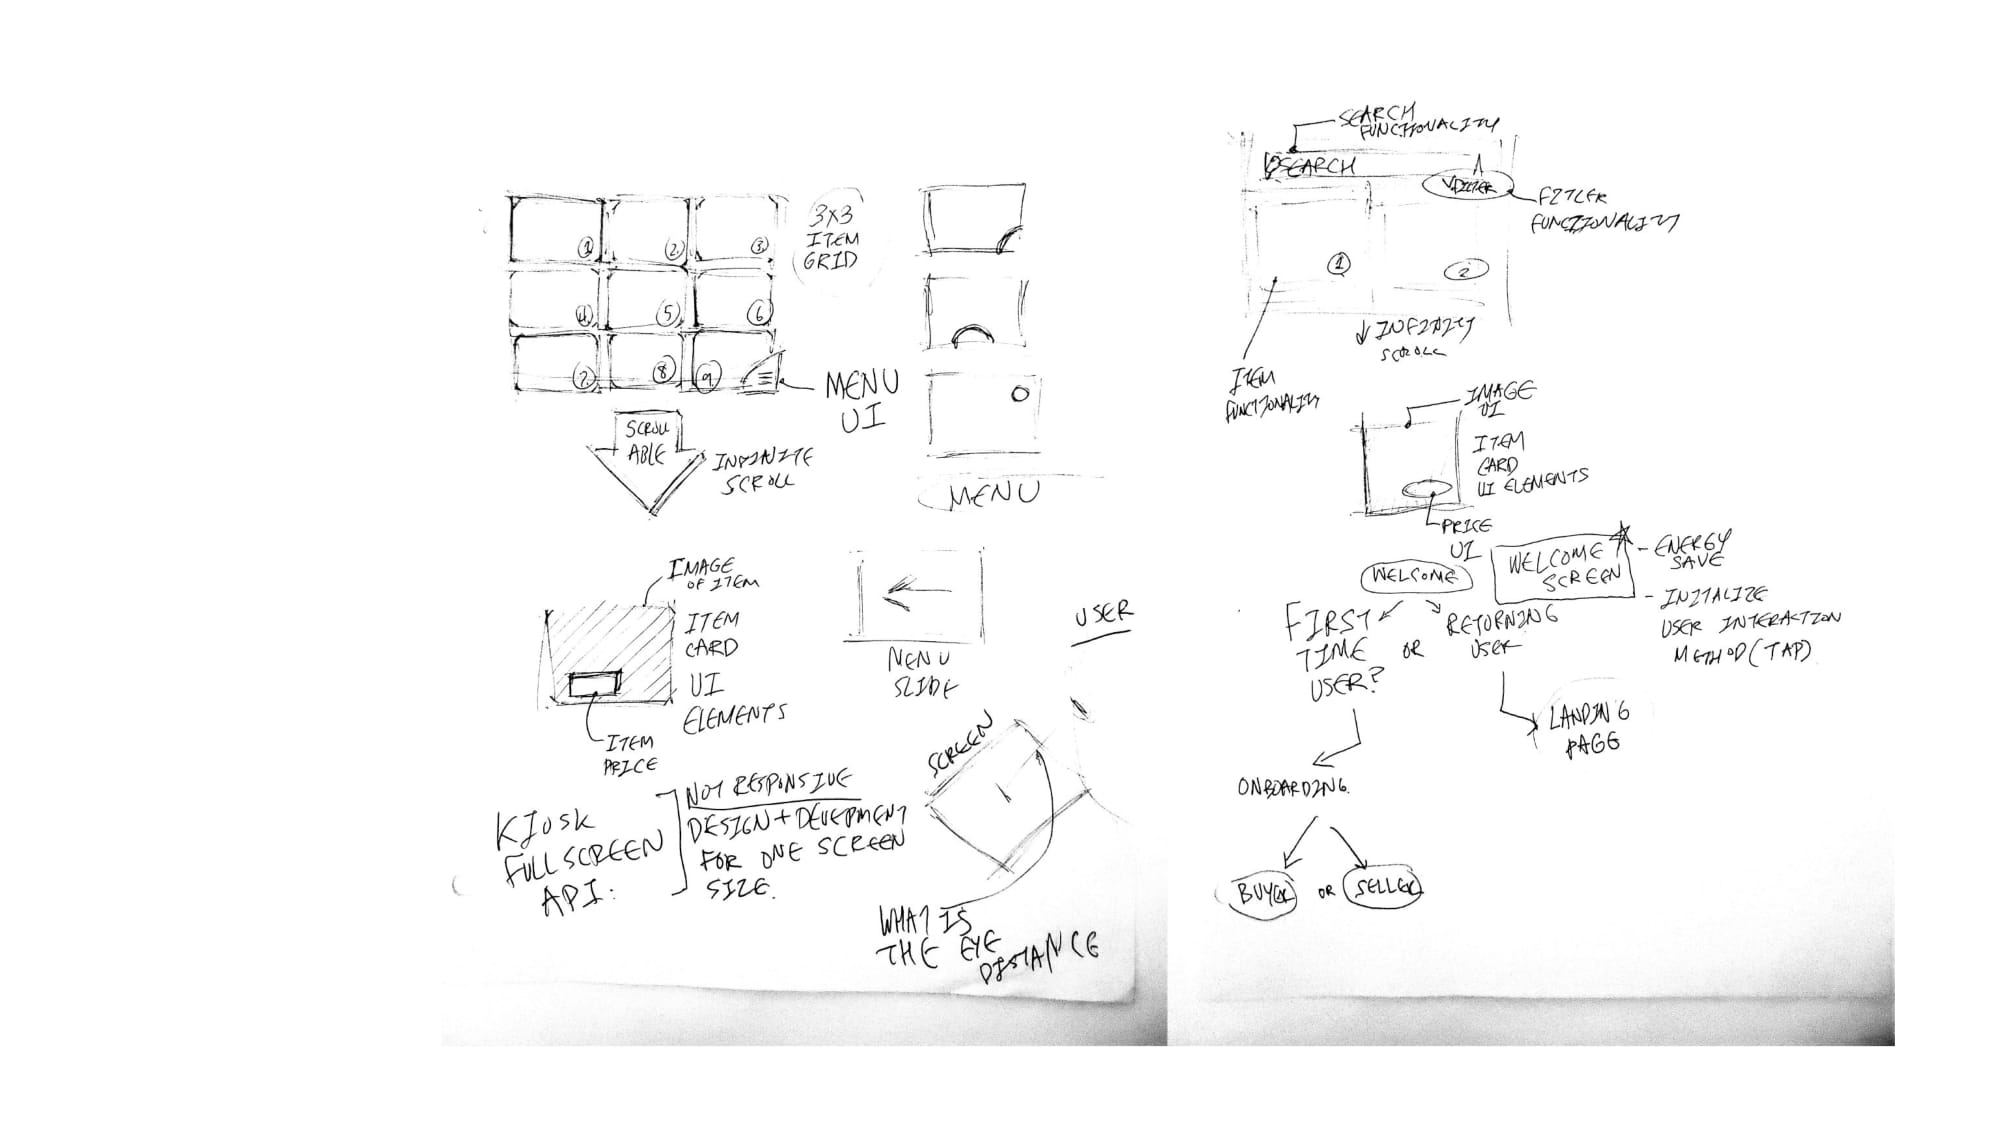 1
2
3
4
5
6
7
8
9
3X3
ITEM
GRID
MENU
UI
SCROLL
ABLE
INFINITE
SCROLL
MENU
IMAGE
OF ITEM
ITEM
CARD
UI
ELEMENTS
ITEM
PRICE
MENU
SLIDE
USER
SCREEN
KIOSK
FULLSCREEN
API:
NOT RESPONSIVE
DESIGN + DEVEPMENT
FOR ONE SCREEN
SIZE.
WHAT IS
THE EYE
DISTANCE
SEARCH
FUNCTIONALITY
SEARCH
FILTER
FILTER
FUNCTIONALITY
1
2
INFINITY
SCROLL
ITEM
FUNCTIONALITY
IMAGE
UI
ITEM
CARD
UI ELEMENTS
PRICE
UI
WELCOME
SCREEN
- ENERGY
SAVE
- INITALIZE
USER INTERACTION
METHOD (TAP)
WELCOME
FIRST
TIME
USER?
OR
RETURNING
USER
LANDING
PAGE
ONBOARDING.
BUYER
OR
SELLER